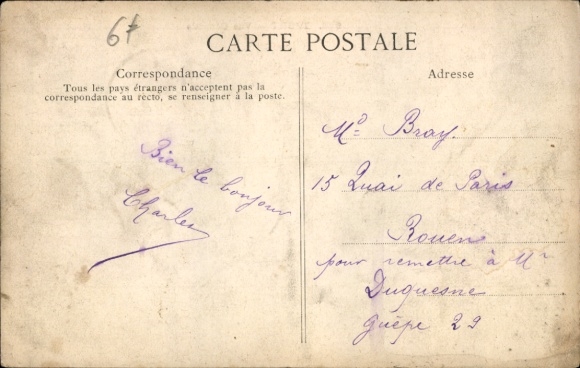 6f
CARTE POSTALE
Correspondance
Tous les pays étrangers n'acceptent pas la
correspondance au recto, se renseigner à la poste.
Bien le bonjour
Charles
Adresse
Md Bray
15 Quai de Paris
Rouen
pour remettre à Mr
Duquesne
Guêpe 29